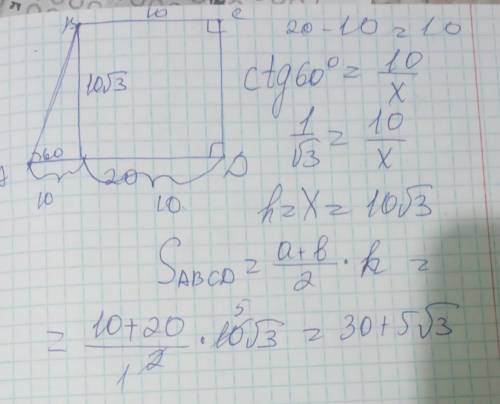 B 10 C
20 - 10 = 10
10√3
ctg60° = 10/x
1/√3 = 10/x
60
A 20 D
10 10
h = x = 10√3
S_ABCD = (a+b)/2 · h =
= (10+20)/2 · 10√3 = 30+5√3
1 5